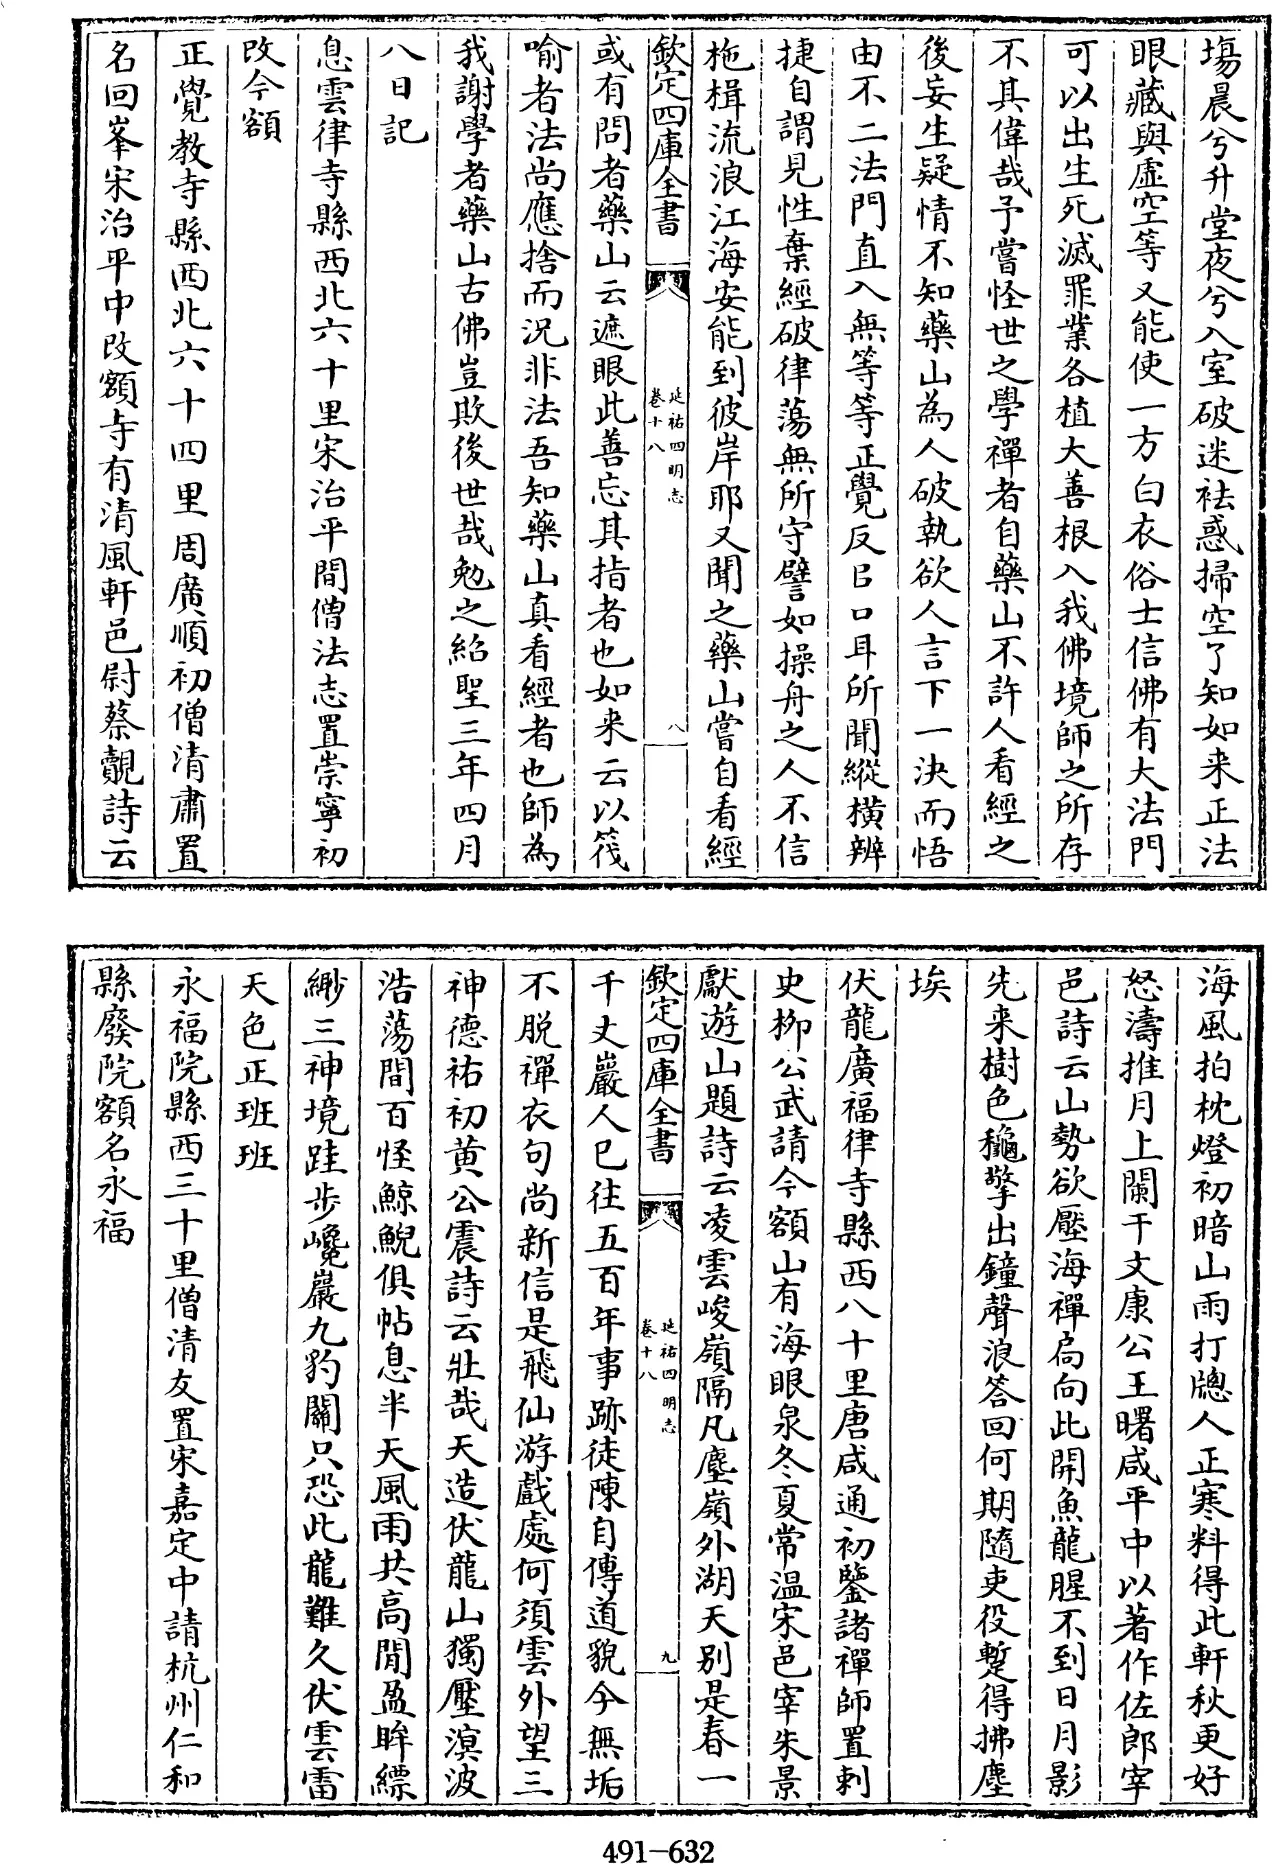 塲晨兮升堂夜兮入室破迷袪惑掃空了知如来正法
眼藏與虛空等又能使一方白衣俗士信佛有大法門
可以出生死滅罪業各植大善根入我佛境師之所存
不其偉哉予嘗怪世之學禪者自藥山不許人看經之
後妄生疑情不知藥山為人破執欲人言下一決而悟
由不二法門直入無等等正覺反㠯口耳所聞縱橫辨
捷自謂見性棄經破律蕩無所守譬如操舟之人不信
柂楫流浪江海安能到彼岸耶又聞之藥山嘗自看經
欽定四庫全書
延祐四明志
卷十八
八
或有問者藥山云遮眼此善忘其指者也如来云以筏
喻者法尚應捨而況非法吾知藥山真看經者也師為
我謝學者藥山古佛豈欺後世哉勉之紹聖三年四月
八日記
息雲律寺縣西北六十里宋治平間僧法志置崇寧初
改今額
正覺教寺縣西北六十四里周廣順初僧清肅置
名回峯宋治平中改額寺有清風軒邑尉蔡覿詩云
海風拍枕燈初暗山雨打牕人正寒料得此軒秋更好
怒濤推月上闌干文康公王曙咸平中以著作佐郎宰
邑詩云山勢欲壓海禪扃向此開魚龍腥不到日月影
先来樹色穐擎出鐘聲浪答回何期隨吏役蹔得拂塵
埃
伏龍廣福律寺縣西八十里唐咸通初鑒諸禪師置刺
史柳公武請今額山有海眼泉冬夏常温宋邑宰朱景
獻遊山題詩云凌雲峻嶺隔凡塵嶺外湖天别是春一
欽定四庫全書
延祐四明志
卷十八
九
千丈巖人已往五百年事跡徒陳自傳道貌今無垢
不脱禪衣句尚新信是飛仙游戲處何須雲外望三
神德祐初黄公震詩云壯哉天造伏龍山獨壓溟波
浩蕩間百怪鯨鯢俱帖息半天風雨共高閒盈眸縹
緲三神境跬步巉巖九豹關只恐此龍難久伏雲雷
天色正班班
永福院縣西三十里僧清友置宋嘉定中請杭州仁和
縣廢院額名永福
491-632